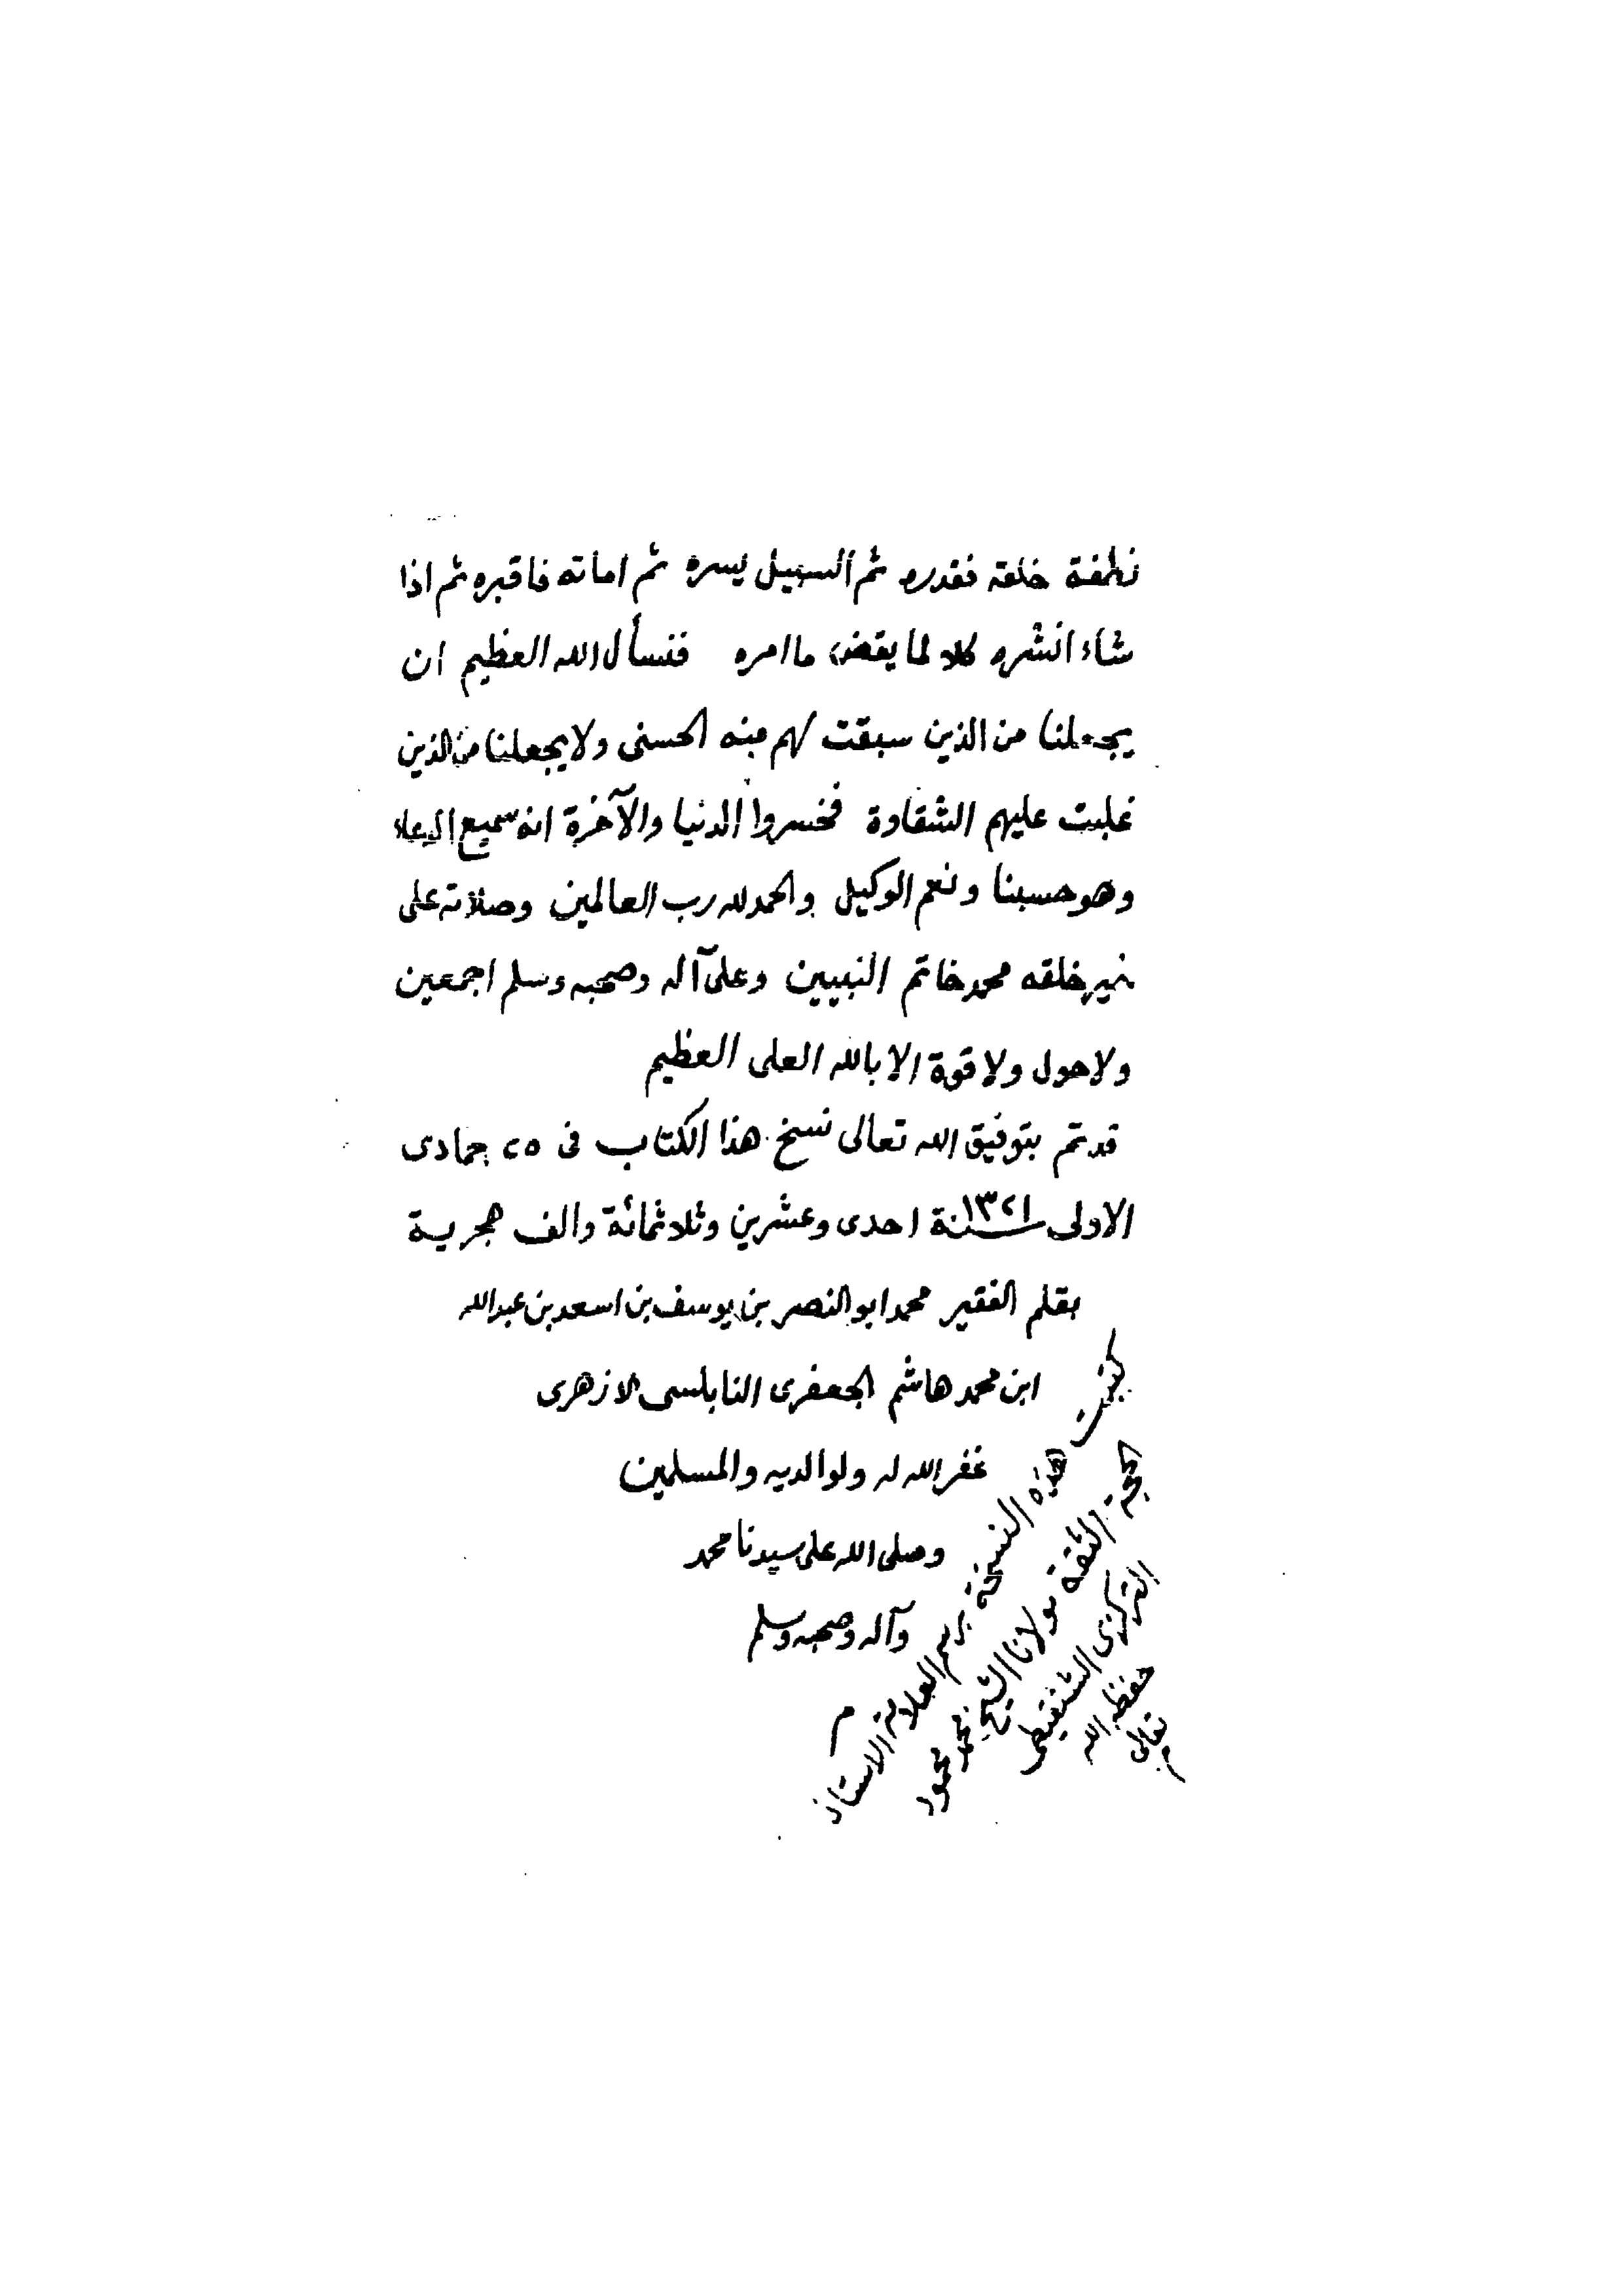 نطفة خلقه فقدره ثم السبيل يسره ثم اماته فاقبره ثم اذا
شاء انشره كلا لما يقض ما امره فنسأل الله العظيم ان
يجعلنا من الذين سبقت لهم منه الحسنى ولا يجعلنا من الذين
غلبت عليهم الشقاوة فخسروا الدنيا والآخرة انه سميع الدعاء
وهو حسبنا ونعم الوكيل والحمد لله رب العالمين وصلاته على
خير خلقه محمد خاتم النبيين وعلى آله وصحبه وسلم اجمعين
ولا حول ولا قوة الا بالله العلى العظيم
قد تم بتوفيق الله تعالى نسخ هذا الكتاب فى ٢٥ جمادى
الاولى سنة ١٣٢١ احدى وعشرين وثلاثمائة والف هجرية
بقلم الفقير محمد ابو النصر بن يوسف بن اسعد بن عبد الله
ابن محمد هاشم الجعفرى النابلسى الازهرى
غفر الله له ولوالديه والمسلمين
وصلى الله على سيدنا محمد
وآله وصحبه وسلم
م
كتبت هذه النسخة برسم العلامة الاستاذ
الحجة الثقة مولانا الشيخ محمد محمود
التركزى الشنقيطى
حفظه الله
تعالى
م